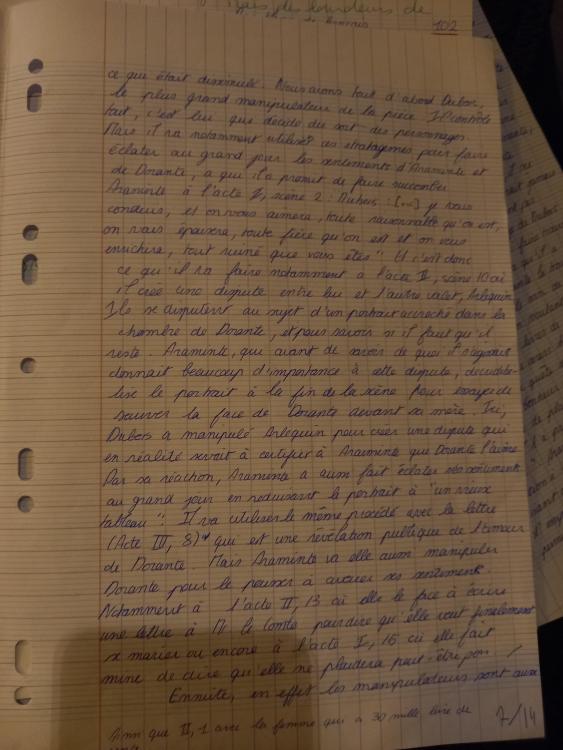 Mais des tondeurs de
102
ce qui était dissimulé. Nous avons tout d'abord Dubois,
le plus grand manipulateur de la pièce. Il contrôle
tout, c'est lui que décide du sort des personages.
Mais il va notamment utiliser des stratagemes pour faire
éclater au grand jour les sentiments d'Araminte et
de Dorante, a que il a promit de faire succomber
Araminte à l'acte I, scène 2 : Dubois : [...] je vous
conduis, et on vous aimera, toute raisonnable qu'on est,
on vous épousera, toute fière qu'on est et on vous
enrichira, tout ruiné que vous êtes". C'est donc
ce qu'il va faire notamment à l'acte II, scène 10 où
il crée une dispute entre lui et l'autre valet, Arlequin.
Ils se disputent au sujet d'un portrait accroché dans la
chambre de Dorante, et pour savoir si il faut qu'il
reste. Araminte, qui avant de savoir de quoi il s'agissait
donnait beaucoup d'importance à cette dispute,
le portrait à la fin de la scène pour essayer de
sauver la face de Dorante devant sa mère. Ici,
Dubois a manipulé Arlequin pour créer une dispute qui
en réalité servait à certifier à Araminte que Dorante l'aime.
Par sa réaction, Araminte a aussi fait éclater ses sentiments
au grand jour en reduisant le portrait à "un vieux
tableau". Il va utiliser le même procédé avec la lettre
(Acte III, 8) qui est une révélation publique de l'amour
de Dorante. Mais Araminte va elle aussi manipuler
Dorante pour le pousser à avouer ses sentiments.
Notamment à l'acte II, 13 où elle le force à écrire
une lettre à M. le Comte pour dire qu'elle veut finalement
se marier ou encore à l'acte I, 15 où elle fait
mine de dire qu'elle ne plaidera peut-être pas. /
Ensuite, en effet les manipulateurs sont aussi
7/14
que II, 1 avec la femme qui a 30 mille livre de